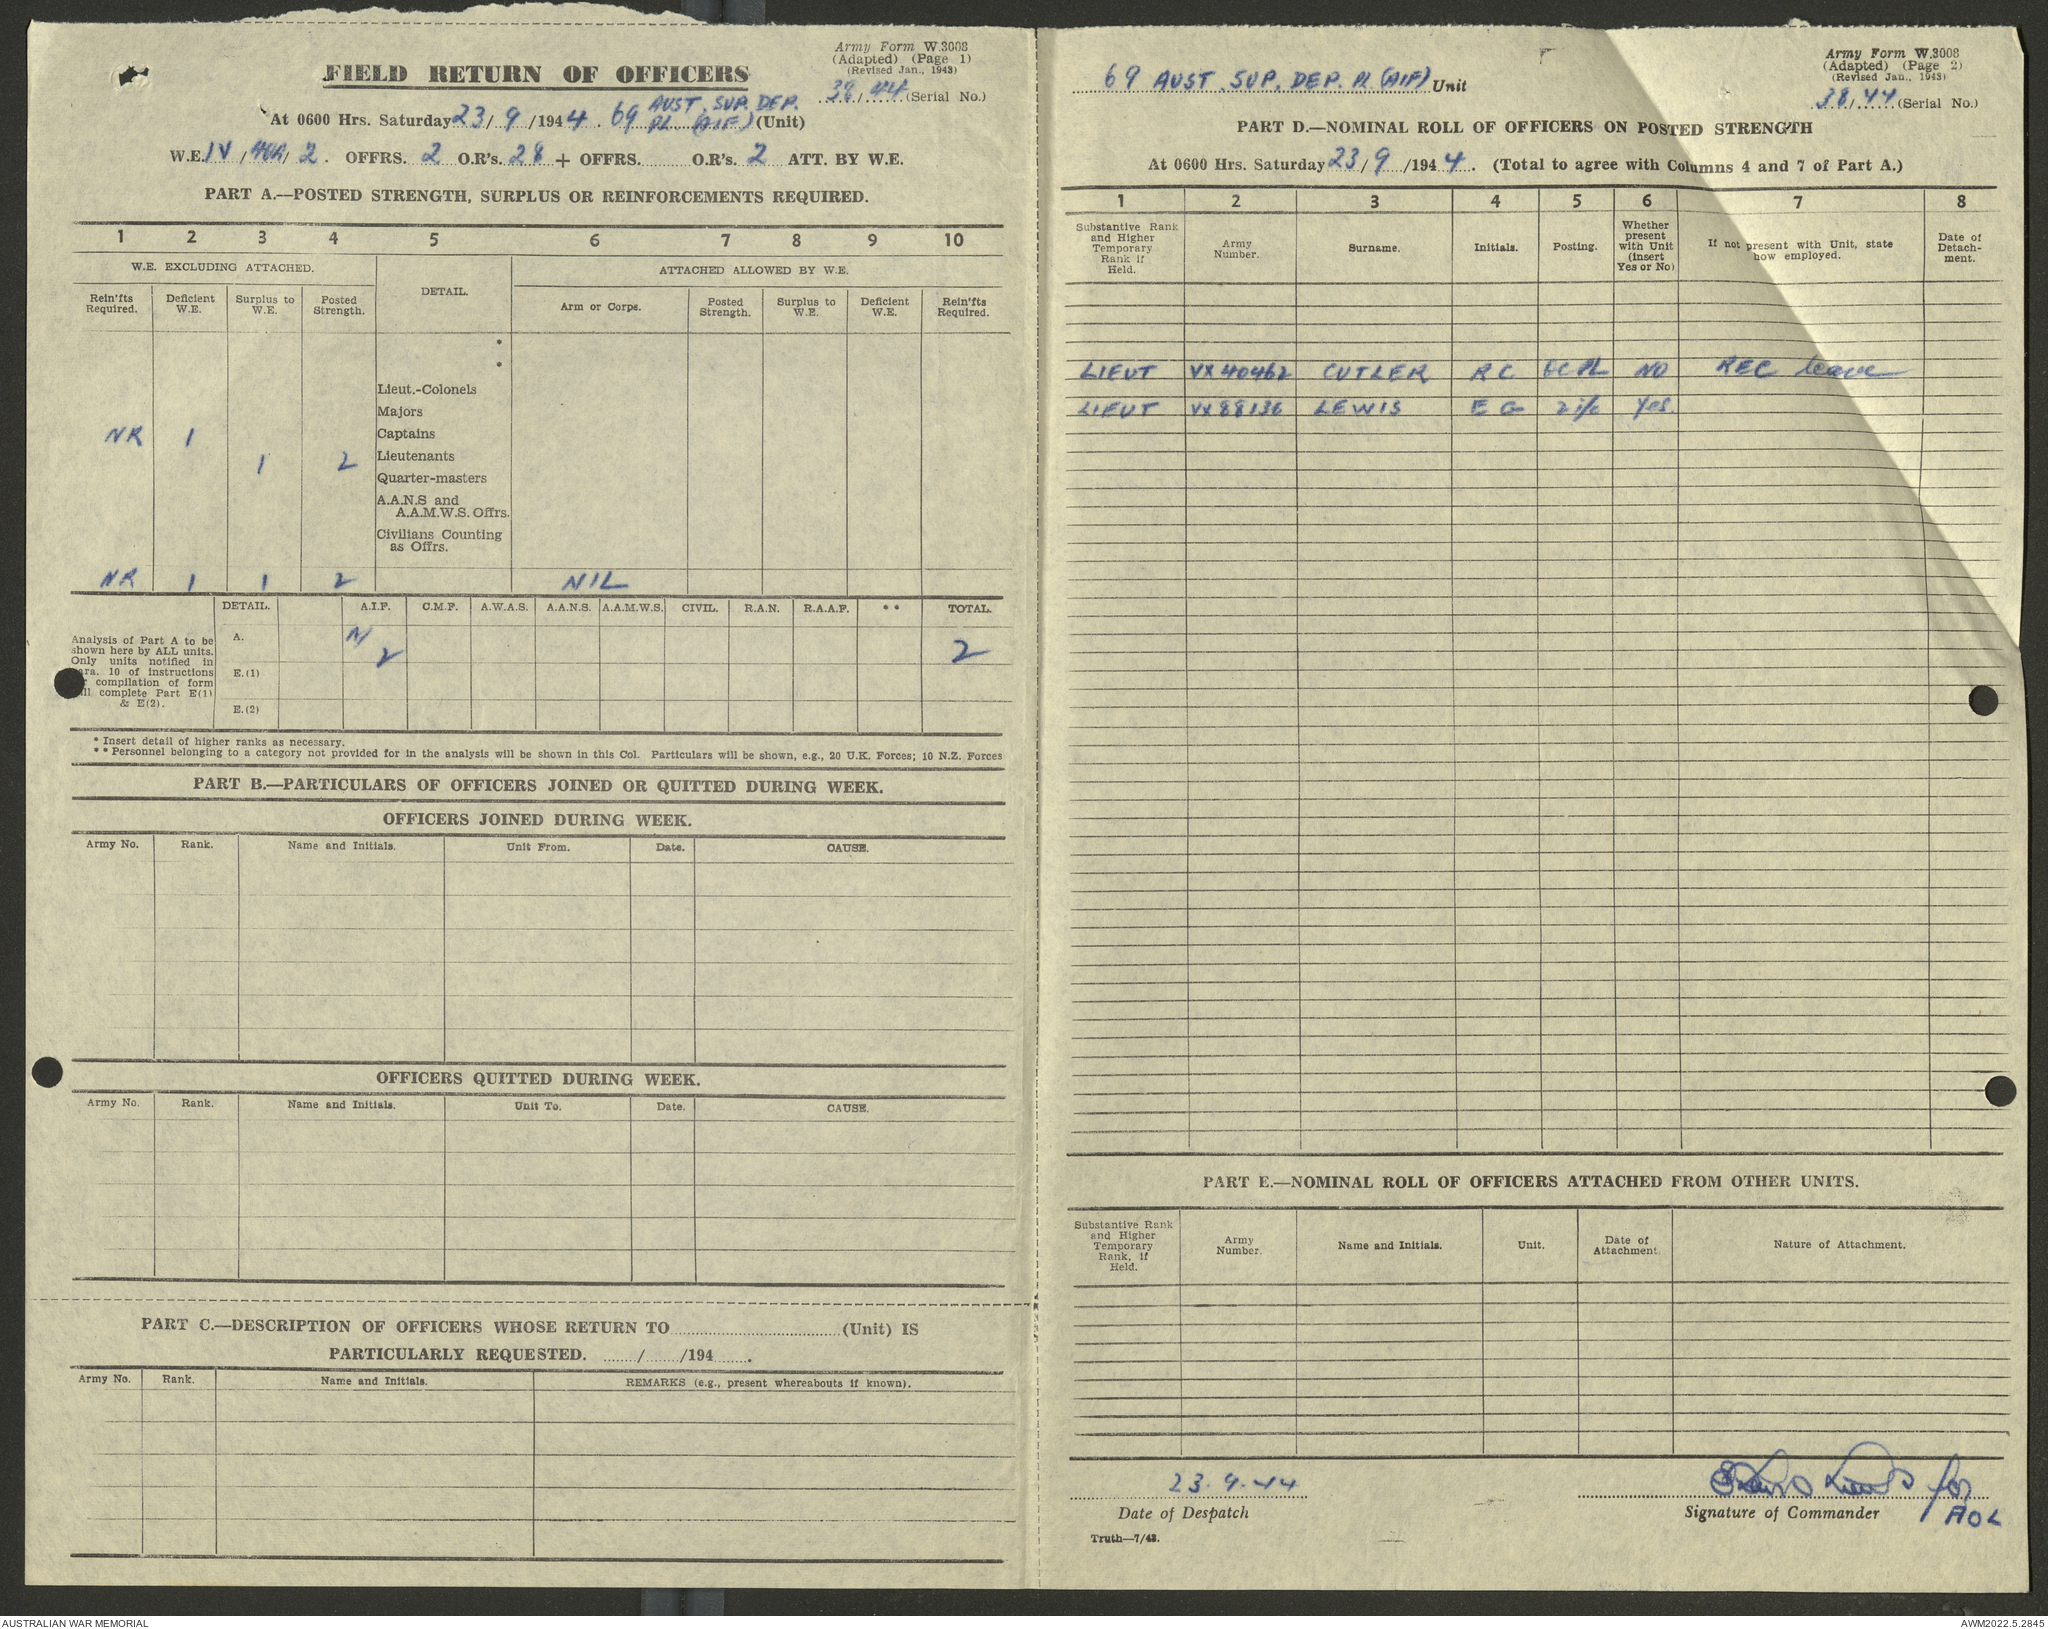 Army Form W.3008
(Adapted) (Page 1)
(Revised Jan., 1943)
FIELD RETURN OF OFFICERS
38/44 (Serial No.)
At 0600 Hrs. Saturday 23/9/1944. 69 AUST. SUP. DEP. PL (AIF) (Unit)
W.E. IV/ /2. OFFRS. 2 O.R's. 28 + OFFRS. O.R's. 2 ATT. BY W.E.
PART A.—POSTED STRENGTH, SURPLUS OR REINFORCEMENTS REQUIRED.
1 2 3 4 5 6 7 8 9 10
W.E. EXCLUDING ATTACHED. DETAIL. ATTACHED ALLOWED BY W.E.
Rein'fts Required. Deficient W.E. Surplus to W.E. Posted Strength. Arm or Corps. Posted Strength. Surplus to W.E. Deficient W.E. Rein'fts Required.
*
*
Lieut.-Colonels
Majors
NR 1 Captains
1 2 Lieutenants
Quarter-masters
A.A.N.S and
A.A.M.W.S. Offrs.
Civilians Counting
as Offrs.
NR 1 1 2 NIL
DETAIL. A.I.F. C.M.F. A.W.A.S. A.A.N.S. A.A.M.W.S. CIVIL. R.A.N. R.A.A.F. ** TOTAL.
Analysis of Part A to be
shown here by ALL units.
Only units notified in
para. 10 of instructions
compilation of form
will complete Part E(1)
& E(2).
A. 2 2
E.(1)
E.(2)
* Insert detail of higher ranks as necessary.
** Personnel belonging to a category not provided for in the analysis will be shown in this Col. Particulars will be shown, e.g., 20 U.K. Forces; 10 N.Z. Forces
PART B.—PARTICULARS OF OFFICERS JOINED OR QUITTED DURING WEEK.
OFFICERS JOINED DURING WEEK.
Army No. Rank. Name and Initials. Unit From. Date. CAUSE.
OFFICERS QUITTED DURING WEEK.
Army No. Rank. Name and Initials. Unit To. Date. CAUSE.
PART C.—DESCRIPTION OF OFFICERS WHOSE RETURN TO (Unit) IS
PARTICULARLY REQUESTED. / /194 .
Army No. Rank. Name and Initials. REMARKS (e.g., present whereabouts if known).
Army Form W.3008
(Adapted) (Page 2)
(Revised Jan., 1943)
69 AUST. SUP. DEP. PL (AIF) Unit
38/44 (Serial No.)
PART D.—NOMINAL ROLL OF OFFICERS ON POSTED STRENGTH
At 0600 Hrs. Saturday 23/9/1944. (Total to agree with Columns 4 and 7 of Part A.)
1 2 3 4 5 6 7 8
Substantive Rank and Higher Temporary Rank if Held. Army Number. Surname. Initials. Posting. Whether present with Unit (insert Yes or No) If not present with Unit, state how employed. Date of Detach- ment.
LIEUT VX40462 CUTLER R C NO REC leave
LIEUT VX88136 LEWIS E G 2i/c Yes.
PART E.—NOMINAL ROLL OF OFFICERS ATTACHED FROM OTHER UNITS.
Substantive Rank and Higher Temporary Rank, if Held. Army Number. Name and Initials. Unit. Date of Attachment. Nature of Attachment.
23.9.44
for
Date of Despatch
Signature of Commander
Truth—7/43.
AUSTRALIAN WAR MEMORIAL
AWM2022.5.2845